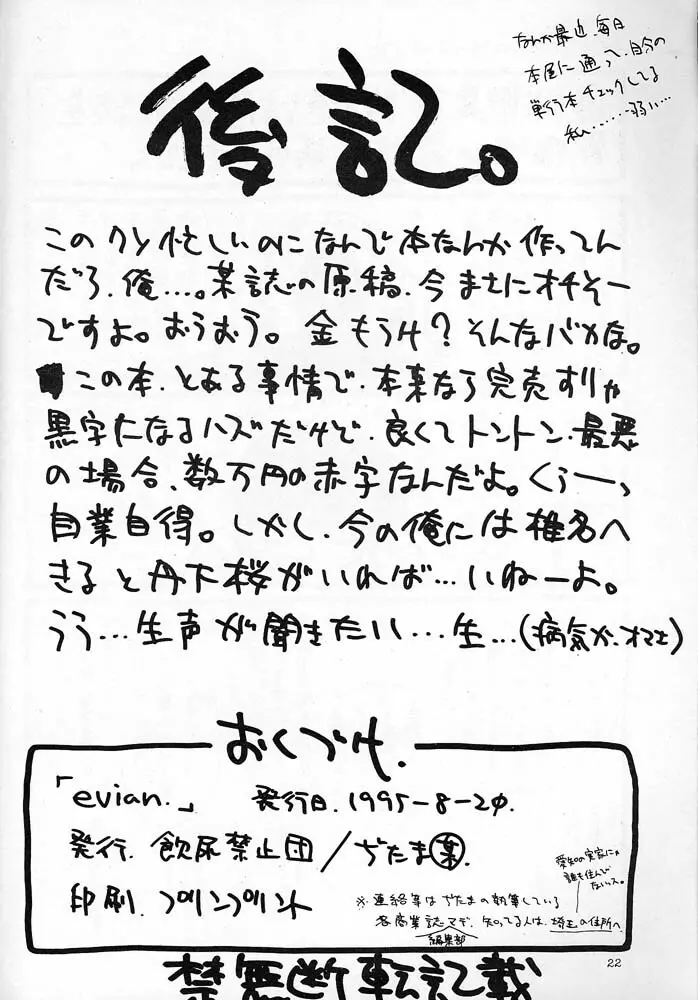 後記。
なんか最近、毎日
本屋に通って、自分の
単行本チェックしてる
私、……弱い…
このクソ忙しいのになんで本なんか作ってん
だろ、俺…。某誌の原稿、今まさにオチそー
ですよ。おうおう。金もうけ?そんなバカな。
この本、とある事情で、本来なら完売すりゃ
黒字になるハズだけど、良くてトントン、最悪
の場合、数万円の赤字なんだよ。くぅーっ
自業自得。しかし、今の俺には椎名へ
きると丹下桜がいれば…いねーよ。
うう…生声が聞きたい…生…(病気か、オマエ)
おくづけ.
「evian.」 発行日.1995-8-20.
発行. 飲尿禁止団/ぢたま某.
印刷. プリンプリント
※連絡等はぢたまの執筆している
各商業誌編集部マデ. 知ってる人は、埼玉の住所へ.
愛知の実家にゃ
誰も住んで
ないッス。
22
禁無断転記載